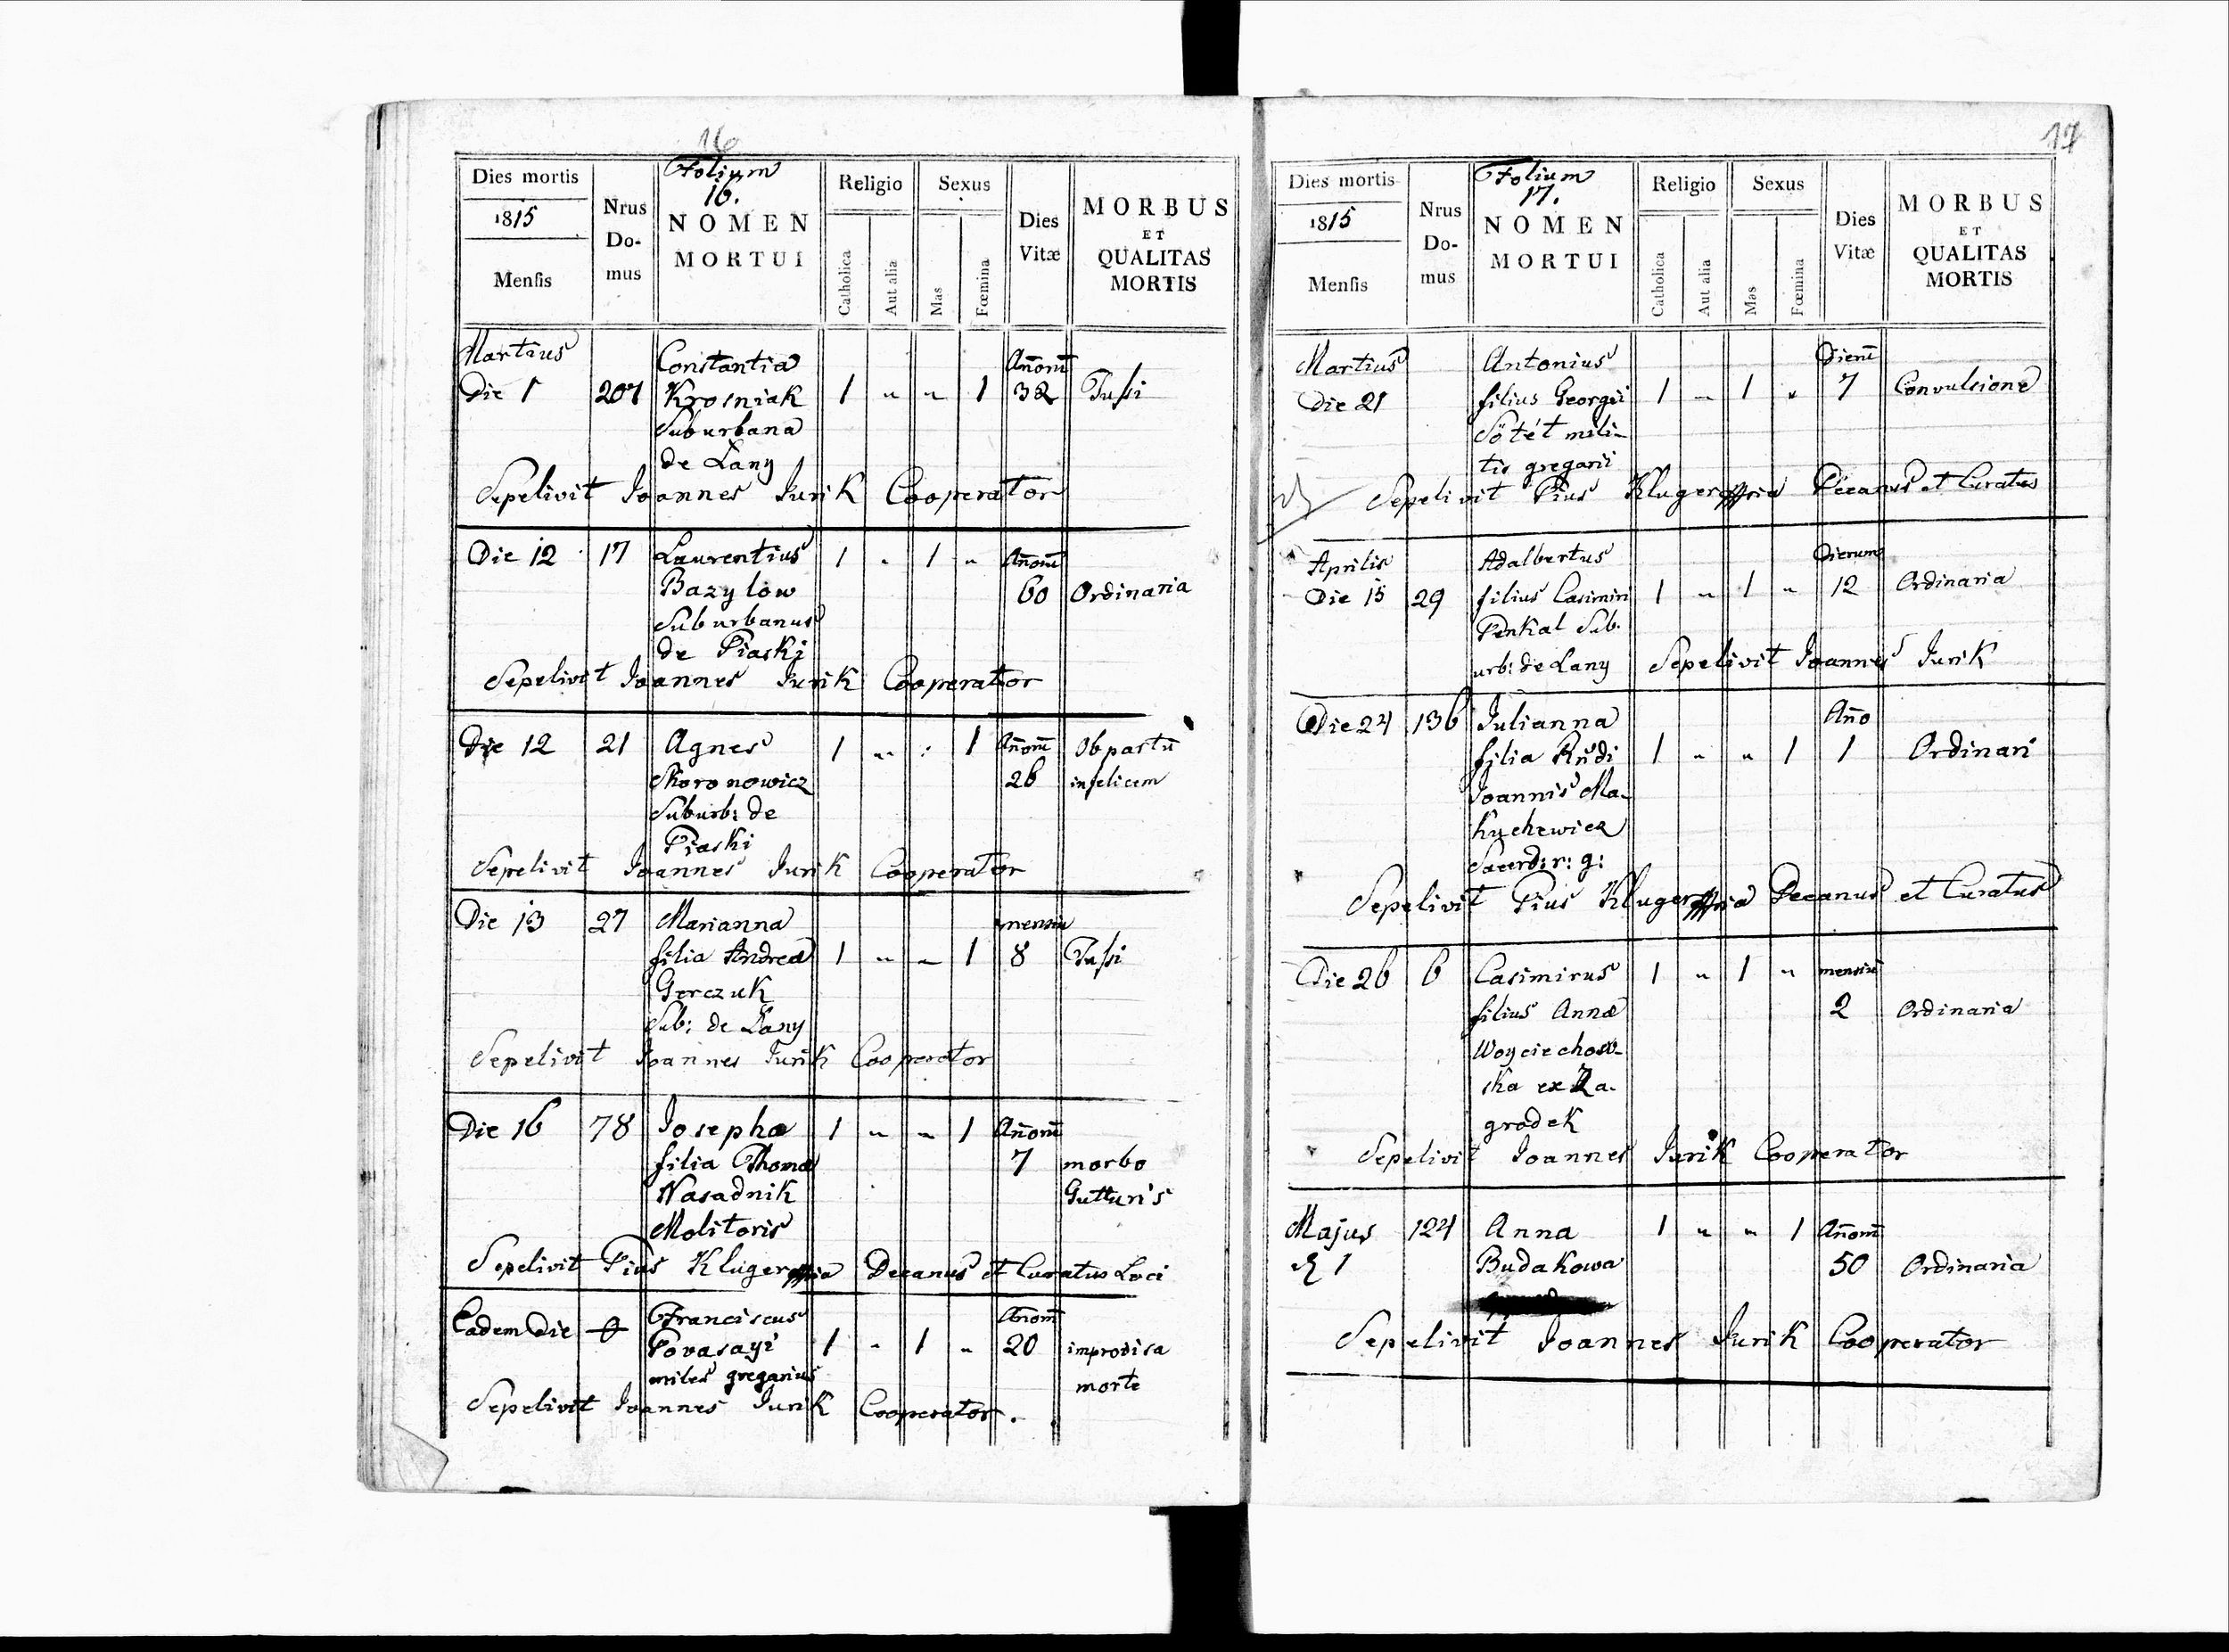 16
Folium
16.
Dies mortis
1815
Mensis
Nrus
Do-
mus
NOMEN
MORTUI
Religio
Catholica
Aut alia
Sexus
Mas
Fœmina
Dies
Vitæ
MORBUS
ET
QUALITAS
MORTIS
Martius
Constantia Añorũ
Die 1 207 Krosniak 1 „ „ 1 32 Tussi
Suburbana
de Lany
Sepelivit Joannes Jurik Cooperator
Die 12 17 Laurentius 1 „ 1 „ Añorũ
Bazylow 60 Ordinaria
Suburbanus
de Piaski
Sepelivit Joannes Jurik Cooperator
Die 12 21 Agnes 1 „ : 1 Añorũ Ob partũ
Skoronowicz 26 infelicem
Suburb: de
Piaski
Sepelivit Joannes Jurik Cooperator
Die 13 27 Marianna mensiũ
filia Andreæ 1 „ „ 1 8 Tussi
Gerczuk
Sub: de Lany
Sepelivit Joannes Jurik Cooperator
Die 16 78 Josepha 1 „ „ 1 Añorũ
filia Thomæ 7 morbo
Nasadnik Gutturis
Molitoris
Sepelivit Pius Kluger Decanus et Curatus Loci
Eadem Die 0 Franciscus Añorũ
Povasayi 1 „ 1 „ 20 improvisa
miles gregarius morte
Sepelivit Joannes Jurik Cooperator.
17
Folium
17.
Dies mortis
1815
Mensis
Nrus
Do-
mus
NOMEN
MORTUI
Religio
Catholica
Aut alia
Sexus
Mas
Fœmina
Dies
Vitæ
MORBUS
ET
QUALITAS
MORTIS
Martius Antonius Dierũ
Die 21 filius Georgii 1 „ 1 „ 7 Convulsione
Sötét mili-
tis gregarii
Sepelivit Pius Kluger Decanus et Curatus
Aprilis Adalbertus Dierum
Die 15 29 filius Casimiri 1 „ 1 „ 12 Ordinaria
Penkal Sub-
urb: de Lany Sepelivit Joannes Jurik
Die 24 136 Julianna Año
filia Rñdi 1 „ „ 1 1 Ordinari
Joannis Ma-
kuchewicz
Sacerd: r: g:
Sepelivit Pius Kluger Decanus et Curatus
Die 26 6 Casimirus 1 „ 1 „ mensiũ
filius Annæ 2 Ordinaria
Woyciechow-
ska ex Za-
grodek
Sepelivit Joannes Jurik Cooperator
Majus 124 Anna 1 „ „ 1 Añorũ
1 Budakowa 50 Ordinaria
Sepelivit Joannes Jurik Cooperator